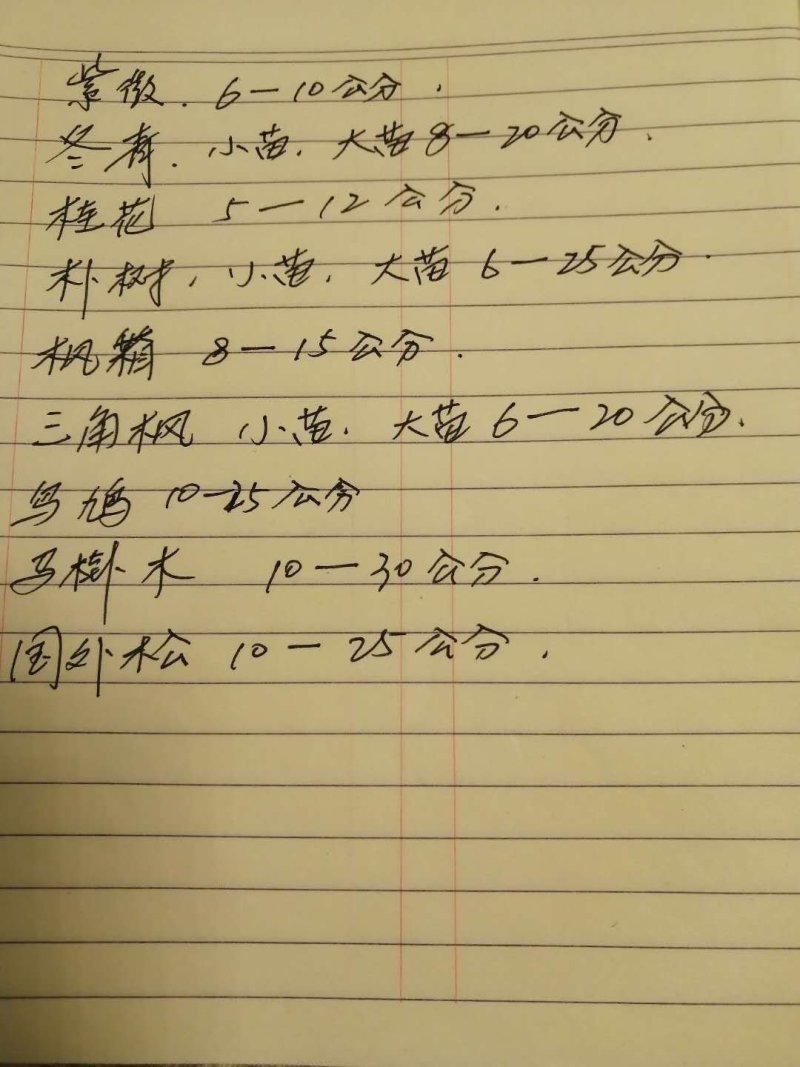 紫微. 6一10公分.
冬青. 小苗. 大苗8一20公分.
桂花 5一12公分.
朴树. 小苗. 大苗6一25公分.
枫箱 8一15公分.
三角枫 小苗. 大苗6一20公分.
乌鸠 10-25公分
马树木 10一30公分.
国外松 10一25公分.